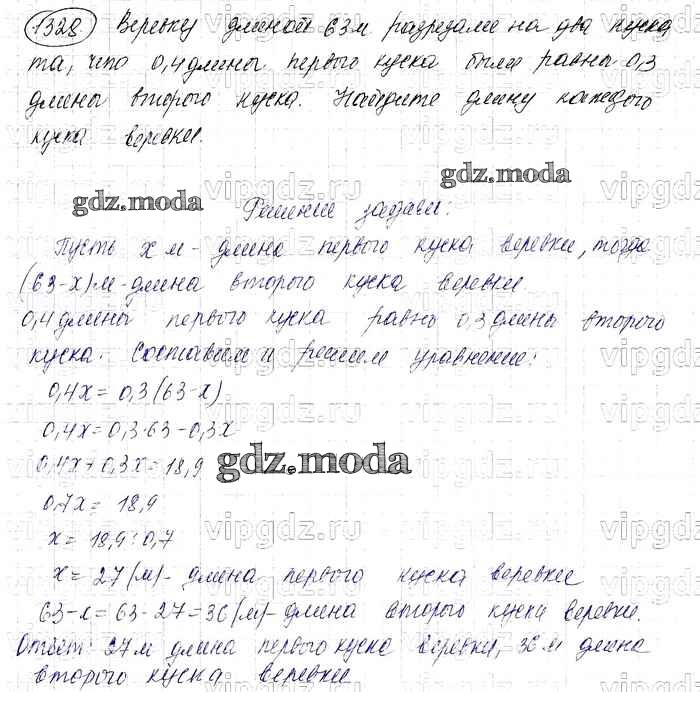 1328 Веревку длиной 63 м разрезали на два куска
та, что 0,4 длины первого куска были равны 0,3
длины второго куска. Найдите длину каждого
куска веревки.
gdz.moda
gdz.moda
Решение задачи:
Пусть x м - длина первого куска веревки, тогда
(63-x) м - длина второго куска веревки.
0,4 длины первого куска равно 0,3 длины второго
куска. Составим и решим уравнение:
0,4x = 0,3(63-x)
0,4x = 0,3·63 - 0,3x
0,4x + 0,3x = 18,9
gdz.moda
0,7x = 18,9
x = 18,9:0,7
x = 27 (м) - длина первого куска веревки
63-x = 63-27 = 36 (м) - длина второго куска веревки.
Ответ: 27 м длина первого куска веревки, 36 м длина
второго куска веревки
vipgdz.ru